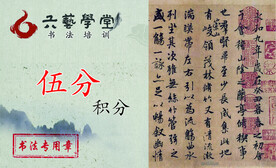 六藝學堂
书法培训
伍分
积分
书法专用章
永和九年歲在癸丑暮春之初會
于會稽山陰之蘭亭脩稧事
也羣賢畢至少長咸集此地
有崇山峻領茂林脩竹又有清流激
湍暎帶左右引以為流觴曲水
列坐其次雖無絲竹管弦之
盛一觴一詠亦足以暢叙幽情